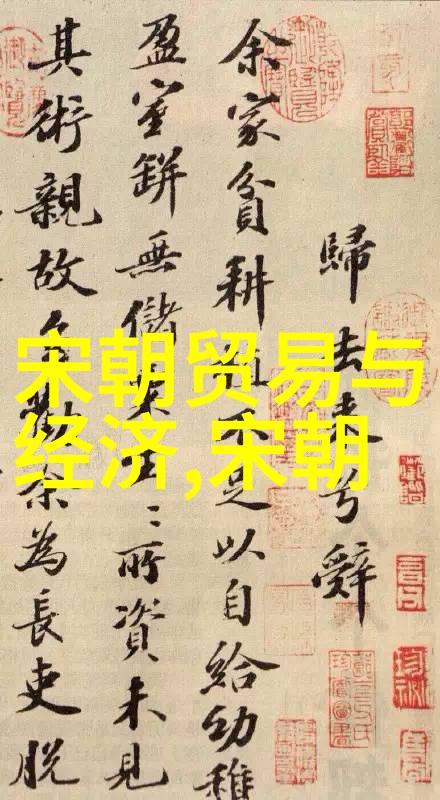 宋朝贸易与
经济,宋朝
歸去来兮辭
余家貧耕植不足以自給幼稚
盈室缾無儲粟生〻所資未見
其術親故多勸余為長吏脫